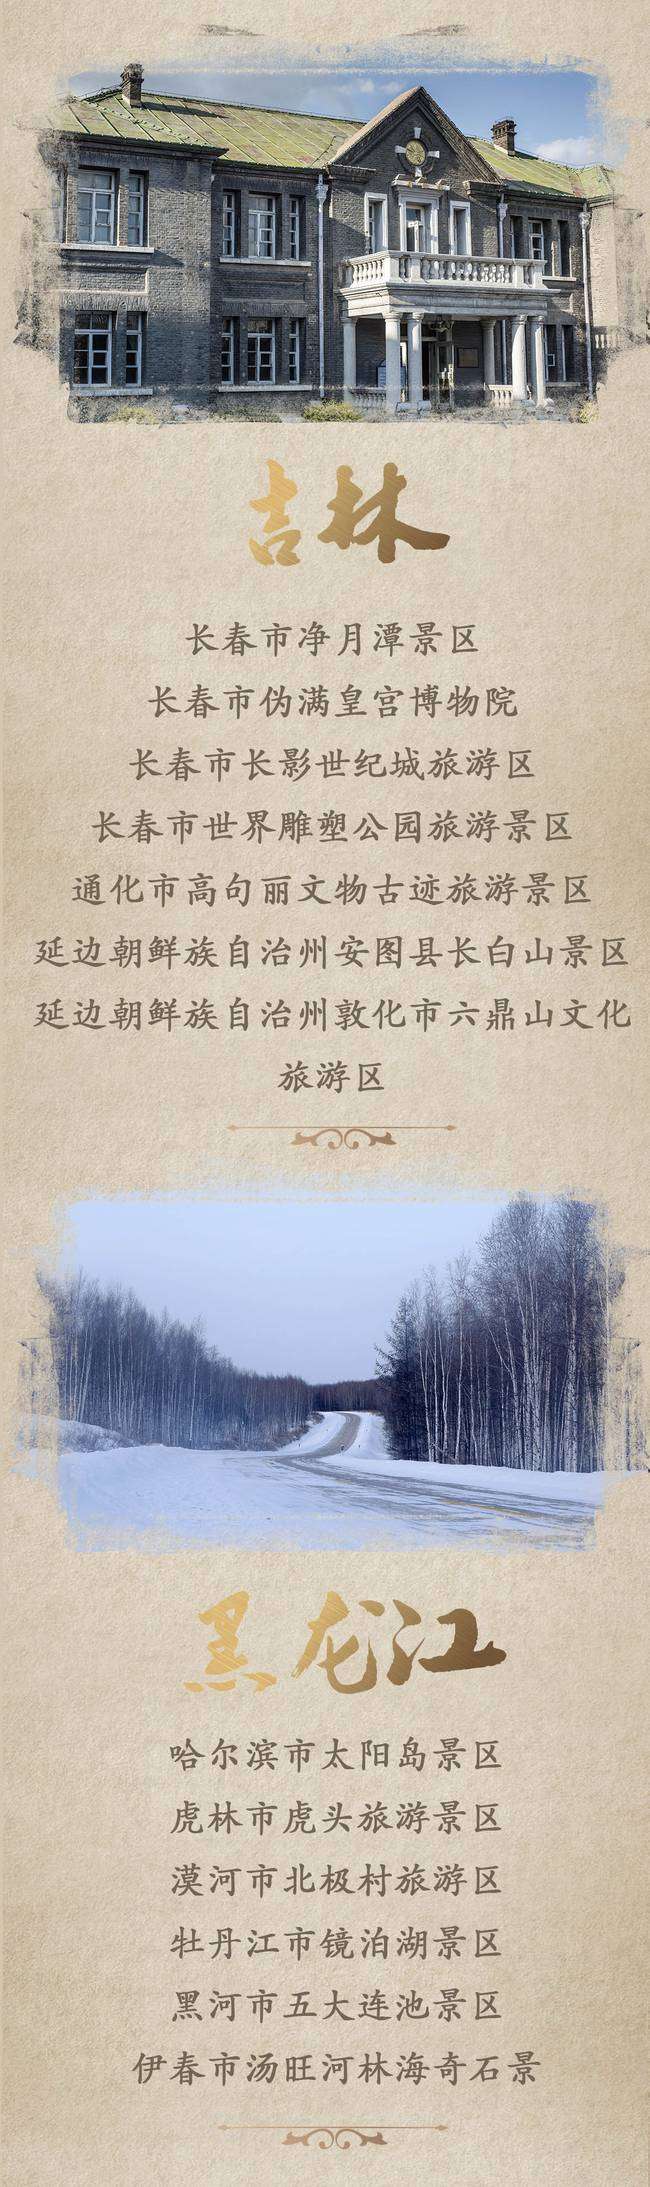 吉林
长春市净月潭景区
长春市伪满皇宫博物院
长春市长影世纪城旅游区
长春市世界雕塑公园旅游景区
通化市高句丽文物古迹旅游景区
延边朝鲜族自治州安图县长白山景区
延边朝鲜族自治州敦化市六鼎山文化
旅游区
黑龙江
哈尔滨市太阳岛景区
虎林市虎头旅游景区
漠河市北极村旅游区
牡丹江市镜泊湖景区
黑河市五大连池景区
伊春市汤旺河林海奇石景